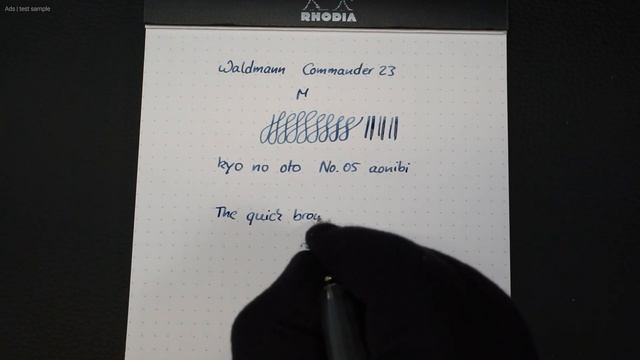 Ads | test sample
RHODIA
Waldmann Commander 23
M
kyo no oto No. 05 aonibi
The quick brow